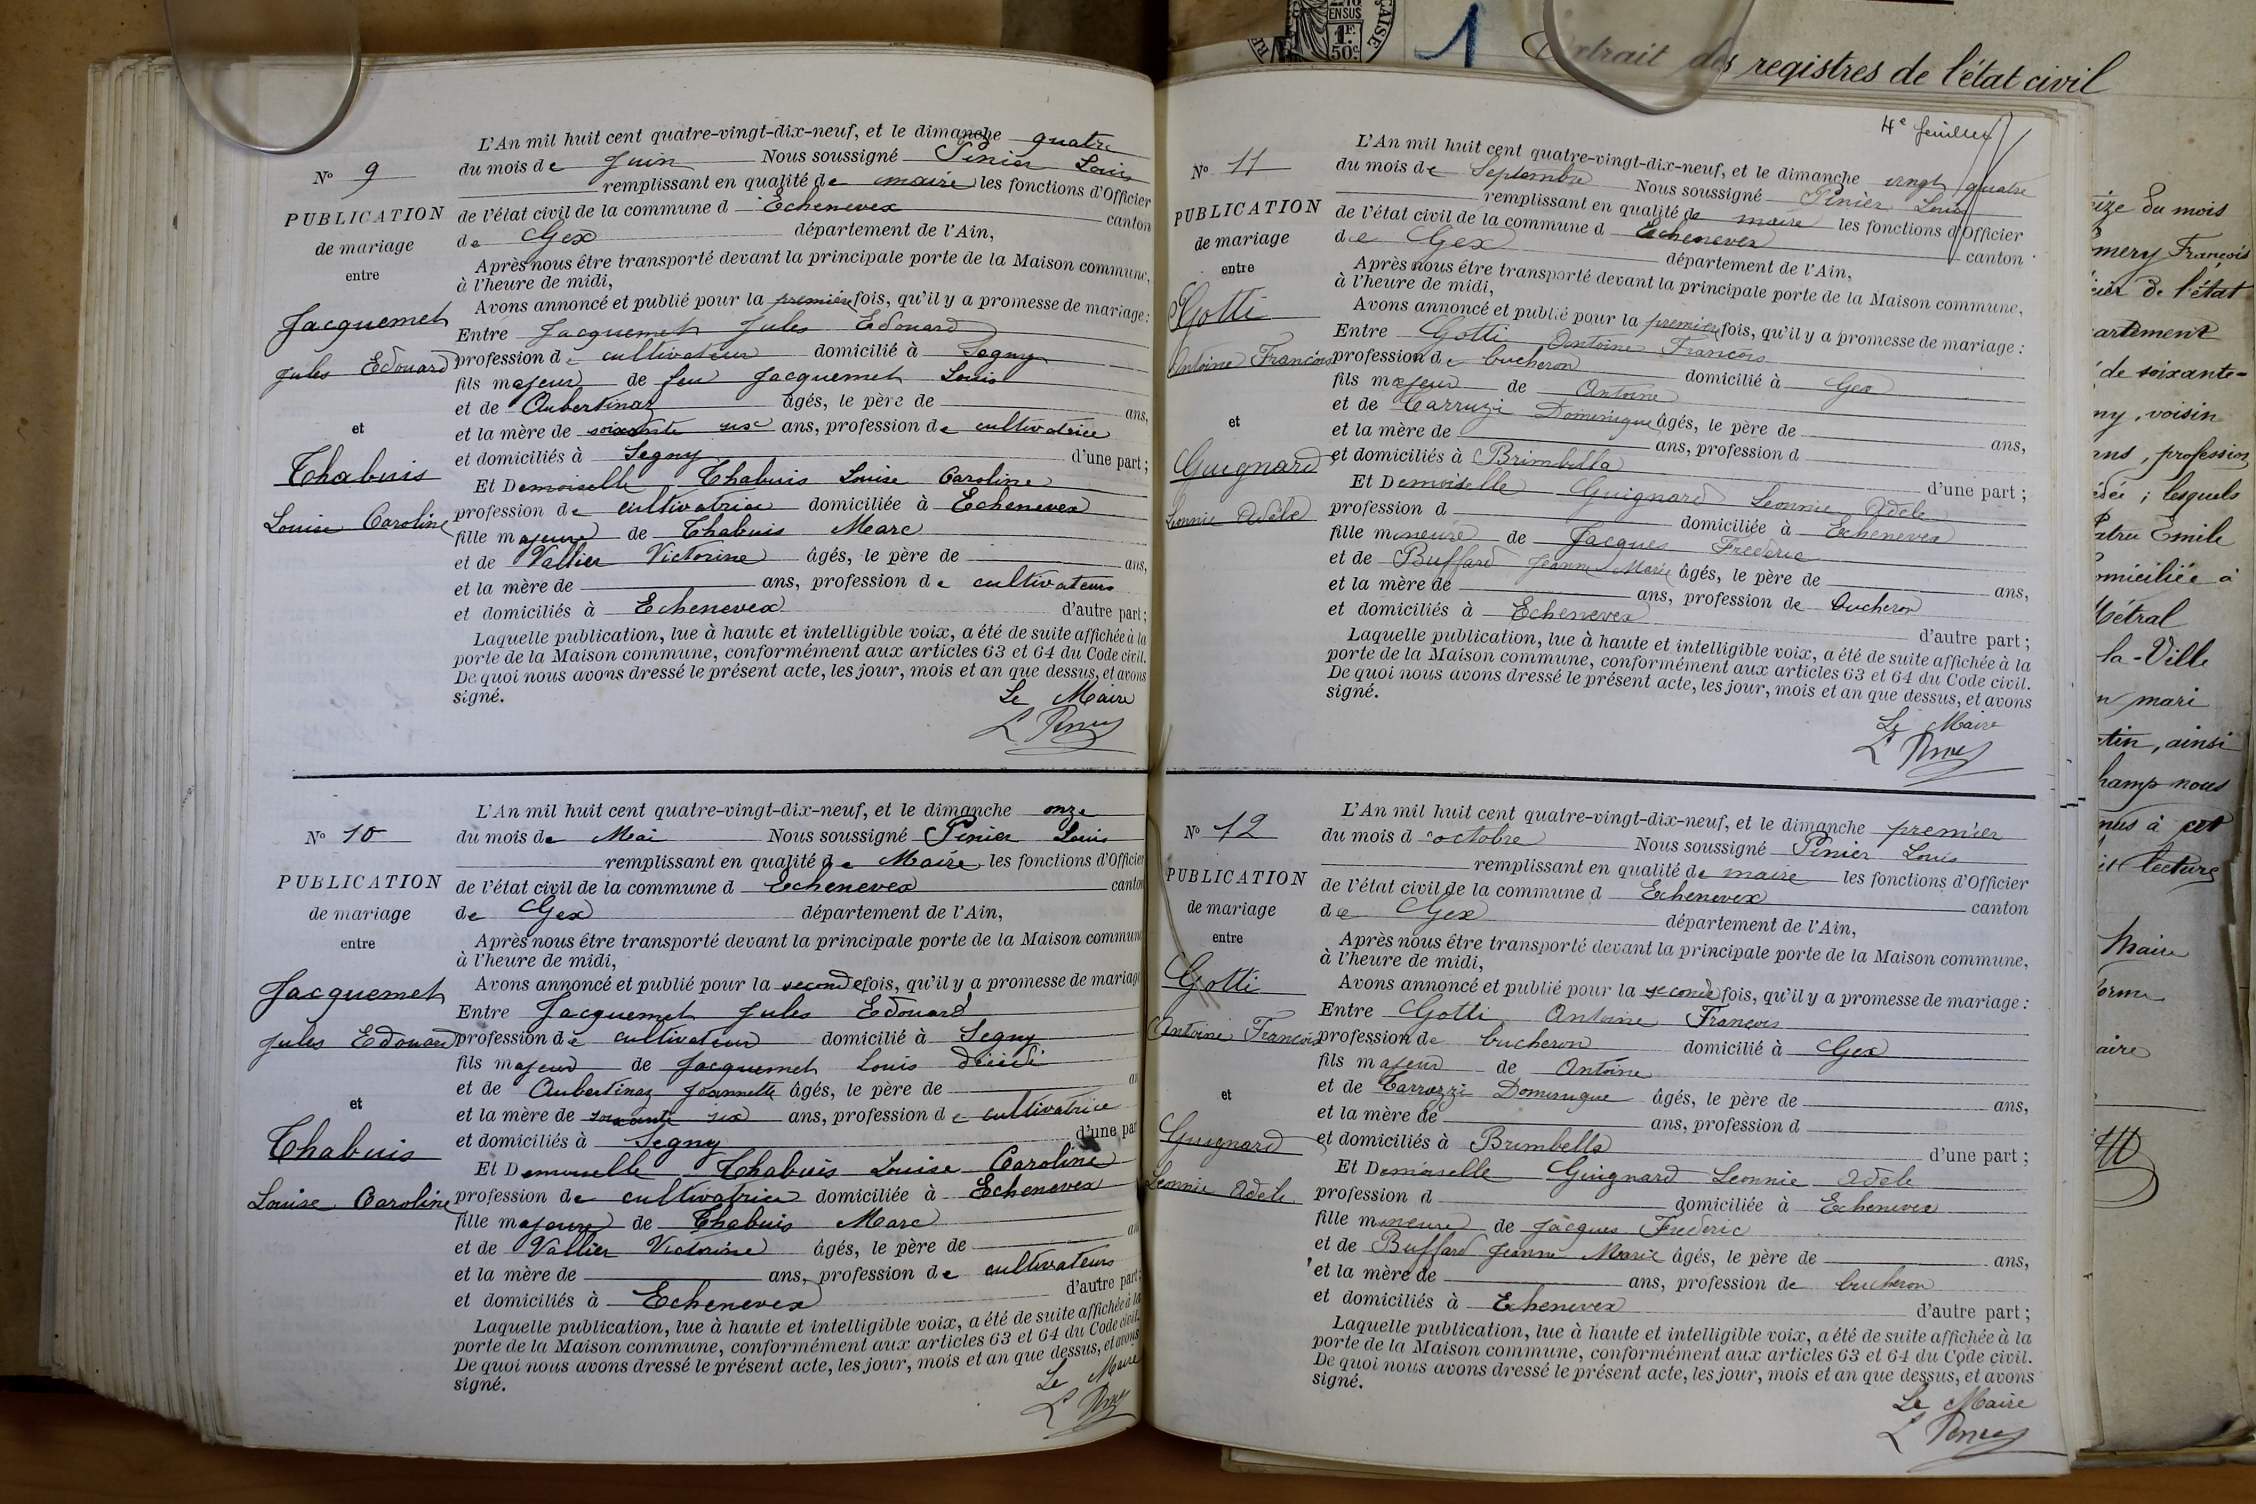 N° 9
PUBLICATION
de mariage
entre
Jacquemet
Jules Edouard
et
Thabuis
Louise Caroline
L'An mil huit cent quatre-vingt-dix-neuf, et le dimanche quatre
du mois de Juin Nous soussigné Pinier Louis
remplissant en qualité de maire les fonctions d'Officier
de l'état civil de la commune d Echenevex canton
de Gex département de l'Ain,
Après nous être transporté devant la principale porte de la Maison commune,
à l'heure de midi,
Avons annoncé et publié pour la première fois, qu'il y a promesse de mariage:
Entre Jacquemet Jules Edouard
profession de cultivateur domicilié à Segny
fils majeur de feu Jacquemet Louis
et de Aubertinaz âgés, le père de ans,
et la mère de soixante six ans, profession de cultivatrice
et domiciliés à Segny d'une part;
Et Demoiselle Thabuis Louise Caroline
profession de cultivatrice domiciliée à Echenevex
fille majeure de Thabuis Marc
et de Vallier Victorine âgés, le père de ans,
et la mère de ans, profession de cultivateurs
et domiciliés à Echenevex d'autre part;
Laquelle publication, lue à haute et intelligible voix, a été de suite affichée à la
porte de la Maison commune, conformément aux articles 63 et 64 du Code civil.
De quoi nous avons dressé le présent acte, les jour, mois et an que dessus, et avons
signé.
Le Maire
N° 10
PUBLICATION
de mariage
entre
Jacquemet
Jules Edouard
et
Thabuis
Louise Caroline
L'An mil huit cent quatre-vingt-dix-neuf, et le dimanche onze
du mois de Mai Nous soussigné Pinier Louis
remplissant en qualité de Maire les fonctions d'Officier
de l'état civil de la commune d Echenevex canton
de Gex département de l'Ain,
Après nous être transporté devant la principale porte de la Maison commun
à l'heure de midi,
Avons annoncé et publié pour la seconde fois, qu'il y a promesse de mariag
Entre Jacquemet Jules Edouard
profession de cultivateur domicilié à Segny
fils majeur de Jacquemet Louis décédé
et de Aubertinaz Jeannette âgés, le père de an
et la mère de soixante six ans, profession de cultivatrice
et domiciliés à Segny d'une par
Et Demoiselle Thabuis Louise Caroline
profession de cultivatrice domiciliée à Echenevex
fille majeure de Thabuis Marc
et de Vallier Victorine âgés, le père de an
et la mère de ans, profession de cultivateurs
et domiciliés à Echenevex d'autre part;
Laquelle publication, lue à haute et intelligible voix, a été de suite affichée à la
porte de la Maison commune, conformément aux articles 63 et 64 du Code civil.
De quoi nous avons dressé le présent acte, les jour, mois et an que dessus, et avons
signé.
Le Maire
4e feuillet
N° 11
PUBLICATION
de mariage
entre
Gotti
Antoine François
et
Guignard
Leonnie Adele
L'An mil huit cent quatre-vingt-dix-neuf, et le dimanche vingt quatre
du mois de Septembre Nous soussigné Pinier Louis
remplissant en qualité de maire les fonctions d'Officier
de l'état civil de la commune d Echenevex canton
de Gex département de l'Ain,
Après nous être transporté devant la principale porte de la Maison commune,
à l'heure de midi,
Avons annoncé et publié pour la premier fois, qu'il y a promesse de mariage :
Entre Gotti Antoine François
profession de bucheron domicilié à Gex
fils majeur de Antoine
et de Carruzi Dominique âgés, le père de ans,
et la mère de ans, profession d
et domiciliés à Brimbella d'une part ;
Et Demoiselle Guignard Leonnie Adele
profession d domiciliée à Echenevex
fille mineure de Jacques Frederic
et de Buffard Jeanne Marie âgés, le père de ans,
et la mère de ans, profession de bucheron
et domiciliés à Echenevex d'autre part ;
Laquelle publication, lue à haute et intelligible voix, a été de suite affichée à la
porte de la Maison commune, conformément aux articles 63 et 64 du Code civil.
De quoi nous avons dressé le présent acte, les jour, mois et an que dessus, et avons
signé.
Le Maire
N° 12
PUBLICATION
de mariage
entre
Gotti
Antoine François
et
Guignard
Leonnie Adele
L'An mil huit cent quatre-vingt-dix-neuf, et le dimanche premier
du mois d'octobre Nous soussigné Pinier Louis
remplissant en qualité de maire les fonctions d'Officier
de l'état civil de la commune d Echenevex canton
de Gex département de l'Ain,
Après nous être transporté devant la principale porte de la Maison commune,
à l'heure de midi,
Avons annoncé et publié pour la seconde fois, qu'il y a promesse de mariage :
Entre Gotti Antoine François
profession de bucheron domicilié à Gex
fils majeur de Antoine
et de Carrozzi Dominique âgés, le père de ans,
et la mère de ans, profession d
et domiciliés à Brimbella d'une part ;
Et Demoiselle Guignard Leonnie Adele
profession d domiciliée à Echenevex
fille mineure de Jacques Frederic
et de Buffard Jeanne Marie âgés, le père de ans,
et la mère de ans, profession de bucheron
et domiciliés à Echenevex d'autre part ;
Laquelle publication, lue à haute et intelligible voix, a été de suite affichée à la
porte de la Maison commune, conformément aux articles 63 et 64 du Code civil.
De quoi nous avons dressé le présent acte, les jour, mois et an que dessus, et avons
signé.
Le Maire
EN SUS
1F.
50c
1
Extrait des registres de l'état civil
du mois
François
de l'état
de soixante-
ny, voisin
ans, profession
lesquels
Emile
domiciliée à
Métral
la-Ville
mari
ainsi
champ nous
à cet
lecture
Maire